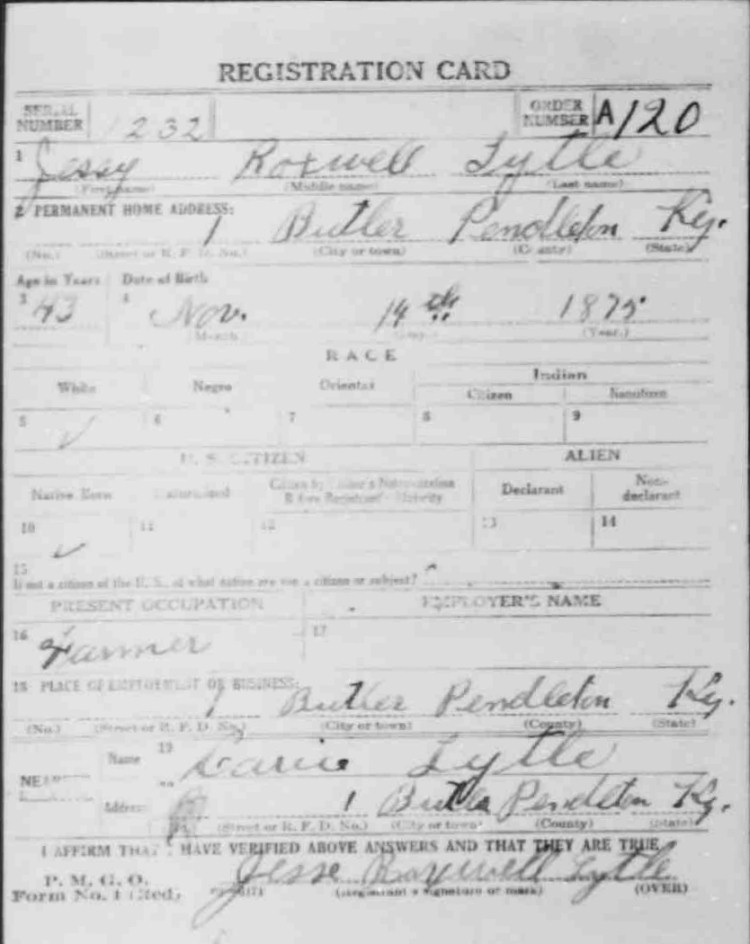 REGISTRATION CARD
SERIAL NUMBER 1232 ORDER NUMBER A120
1 Jessy Roxwell Lytle
(First name) (Middle name) (Last name)
2 PERMANENT HOME ADDRESS:
1 Butler Pendleton Ky.
(No.) (Street or R. F. D. No.) (City or town) (County) (State)
Age in Years Date of Birth
3 43 4 Nov. 14th 1875
(Month) (Day.) (Year.)
RACE
White Negro Oriental Indian
Citizen Noncitizen
5 ✓ 6 7 8 9
U. S. CITIZEN ALIEN
Native Born Naturalized Citizen by Father's Naturalization Before Registrant's Majority Declarant Non-declarant
10 ✓ 11 12 13 14
15
If not a citizen of the U. S., of what nation are you a citizen or subject?
PRESENT OCCUPATION EMPLOYER'S NAME
16 Farmer 17
18 PLACE OF EMPLOYMENT OR BUSINESS:
1 Butler Pendleton Ky.
(No.) (Street or R. F. D. No.) (City or town) (County) (State)
Name 19 Lytle
NEA
Address 1 Butler Pendleton Ky.
(Street or R. F. D. No.) (City or town) (County) (State)
I AFFIRM THAT I HAVE VERIFIED ABOVE ANSWERS AND THAT THEY ARE TRUE
P. M. G. O. Jesse Roxwell Lytle
Form No. 1 (Red) (Registrant's signature or mark) (OVER)